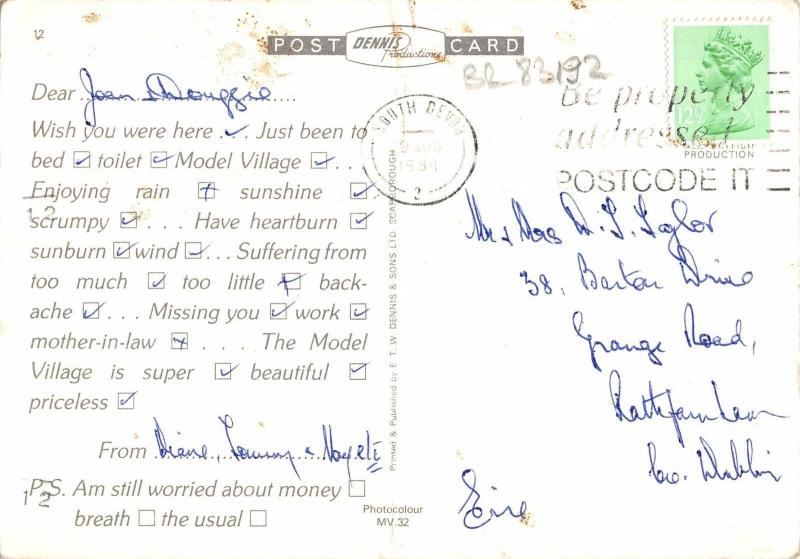 12
POST DENNIS Productions CARD
BR 83/192
Dear Joan & Douggie
Wish you were here ... Just been to
bed ☑ toilet ☑ Model Village ☑ ...
Enjoying rain ☒ sunshine ☑
12
scrumpy ☑ ... Have heartburn ☑
sunburn ☑ wind ☑ ... Suffering from
too much ☑ too little ☒ back-
ache ☑ ... Missing you ☑ work ☑
mother-in-law ☒ .... The Model
Village is super ☑ beautiful ☑
priceless ☑
From Diane, &
P.S. Am still worried about money ☐
12
breath ☐ the usual ☐
Printed & Published by E. T. W. DENNIS & SONS LTD SCARBOROUGH
Photocolour
MV.32
SOUTH DEVON
AUG
1984
2
Be properly
addressed
POSTCODE IT
12½P
PRODUCTION
Mr & Mrs Taylor
38, Barton Drive
Grange Road,
Rathfarnham
Co. Dublin
Eire